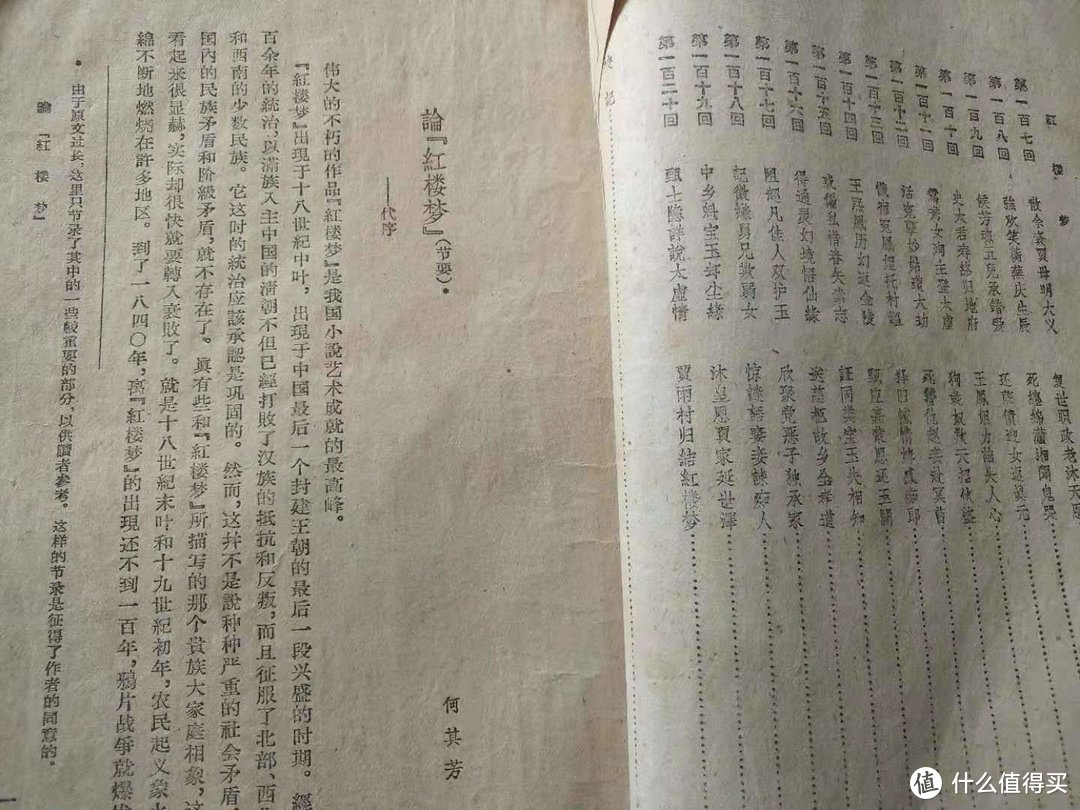 紅 楼 梦
第一百七回 散余資賈母明大义 复世职政老沐天恩
第一百八回 強欢笑蘅蕪庆生辰 死纏綿瀟湘聞鬼哭
第一百九回 候芳魂五兒承錯愛 还孽債迎女返眞元
第一百十回 史太君寿終归地府 王鳳姐力詘失人心
第一百十一回 鴛鴦女殉主登太虛 狗彘奴欺天招伙盜
第一百十二回 活冤孽妙姑遭大劫 死讐仇赵妾赴冥曹
第一百十三回 懺宿冤鳳姐托村嫗 释旧憾情婢感痴郎
第一百十四回 王熙鳳历幻返金陵 甄应嘉蒙恩还玉闕
第一百十五回 惑偏私惜春矢素志 証同类宝玉失相知
第一百十六回 得通灵幻境悟仙緣 送慈柩故乡全孝道
第一百十七回 阻超凡佳人双护玉 欣聚党恶子独承家
第一百十八回 記微嫌舅兄欺弱女 惊謎語妻妾諫痴人
第一百十九回 中乡魁宝玉却尘緣 沐皇恩賈家延世澤
第一百二十回 甄士隐詳說太虛情 賈雨村归結紅楼梦
記
論『紅楼梦』（节要）*
——代序
何其芳
伟大的不朽的作品『紅楼梦』是我国小說艺术成就的最高峰。
『紅楼梦』出現于十八世紀中叶，出現于中国最后一个封建王朝的最后一段兴盛的时期。經
百余年的統治，以滿族入主中国的清朝不但已經打敗了汉族的抵抗和反叛，而且征服了北部、西
和西南的少数民族。它这时的統治应該承認是巩固的。然而，这并不是說种种严重的社会矛盾
国內的民族矛盾和阶級矛盾，就不存在了。眞有些和『紅楼梦』所描写的那个貴族大家庭相象，这
看起来很显赫，实际却很快就要轉入衰敗了。就是十八世紀末叶和十九世紀初年，农民起义象火
綿不断地燃烧在許多地区。到了一八四〇年，离『紅楼梦』的出現还不到一百年，鴉片战爭就爆发
* 由于原文过长，这里只节录了其中的一些較重要的部分，以供讀者参考。这样的节录是征得了作者的同意的。
論『紅楼梦』
一
值 什么值得买